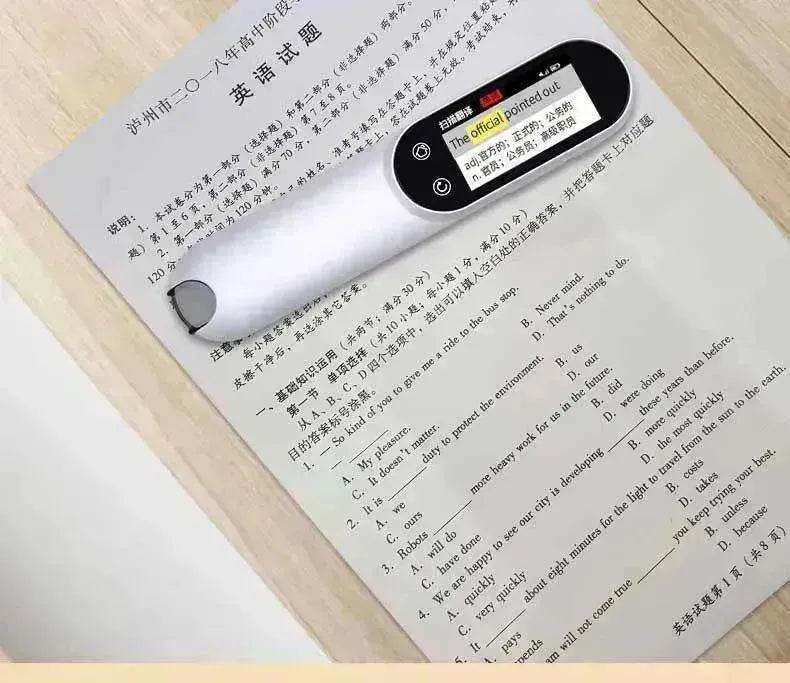 泸州市二〇一八年高中阶段
英语试题
说明：
1. 本试卷分为第一部分（选择题）和第二部分（非选择题）两部分。
题）第1至6页，第二部分（非选择题）第7至8页。
2. 第一部分（选择题）满分70分，第二部分（非选择题）满分50分，
120分
时间为120分钟。
的姓名、准考证号填写在答题卡上，并在规定位置
答在试题卷上无效。考试结束，
每小题答案选出
皮擦干净后，再选涂其它答案。
并把答题卡上对应题
扫描翻译
The official pointed out
adj.官方的；正式的；公务的
n.官员；公务员；高级职员
一、基础知识运用（共两节；满分30分）
第一节 单项选择（共10小题；每小题1分，满分10分）
从A、B、C、D四个选项中，选出可以填入空白处的正确答案，
目的答案标号涂黑。
1. — So kind of you to give me a ride to the bus stop.
A. My pleasure. B. Never mind.
C. It doesn't matter. D. That's nothing to do.
2. It is ______ duty to protect the environment.
A. we B. us
C. ours D. our
3. Robots ______ more heavy work for us in the future.
A. will do B. did
C. have done D. were doing
4. We are happy to see our city is developing ______ these years than before.
A. quickly B. more quickly
C. very quickly D. the most quickly
5. It ______ about eight minutes for the light to travel from the sun to the earth.
A. pays B. costs
pends D. takes
am will not come true ______ you keep trying your best.
B. unless
D. because
英语试题第1页（共8页）